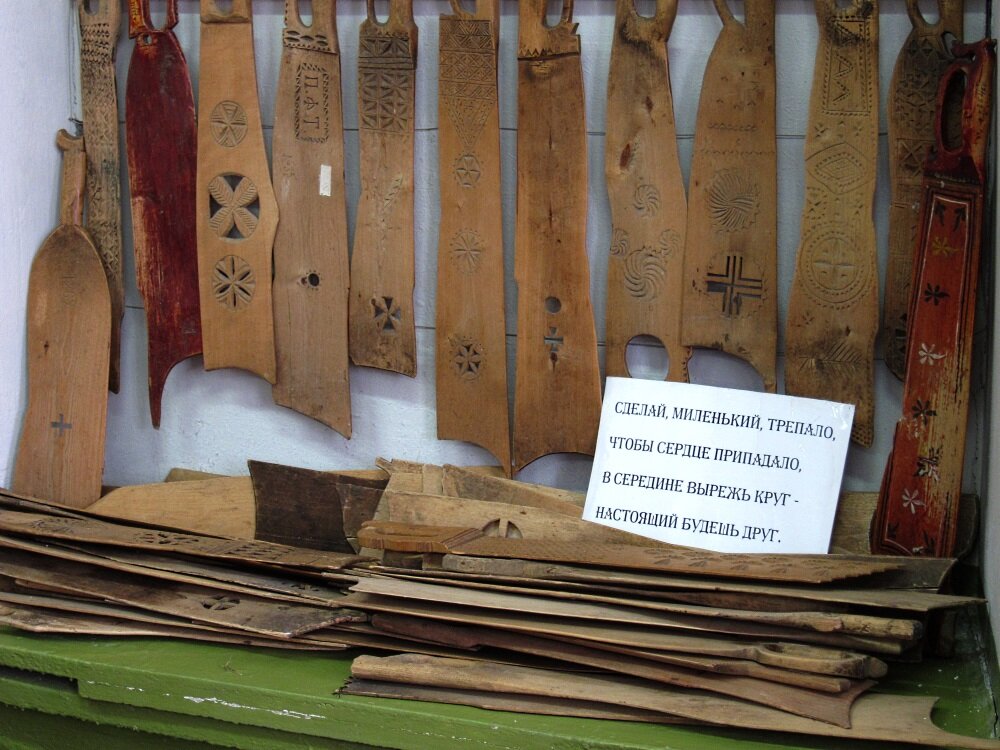 П Ф Г
СДЕЛАЙ, МИЛЕНЬКИЙ, ТРЕПАЛО,
ЧТОБЫ СЕРДЦЕ ПРИПАДАЛО,
В СЕРЕДИНЕ ВЫРЕЖЬ КРУГ -
НАСТОЯЩИЙ БУДЕШЬ ДРУГ.